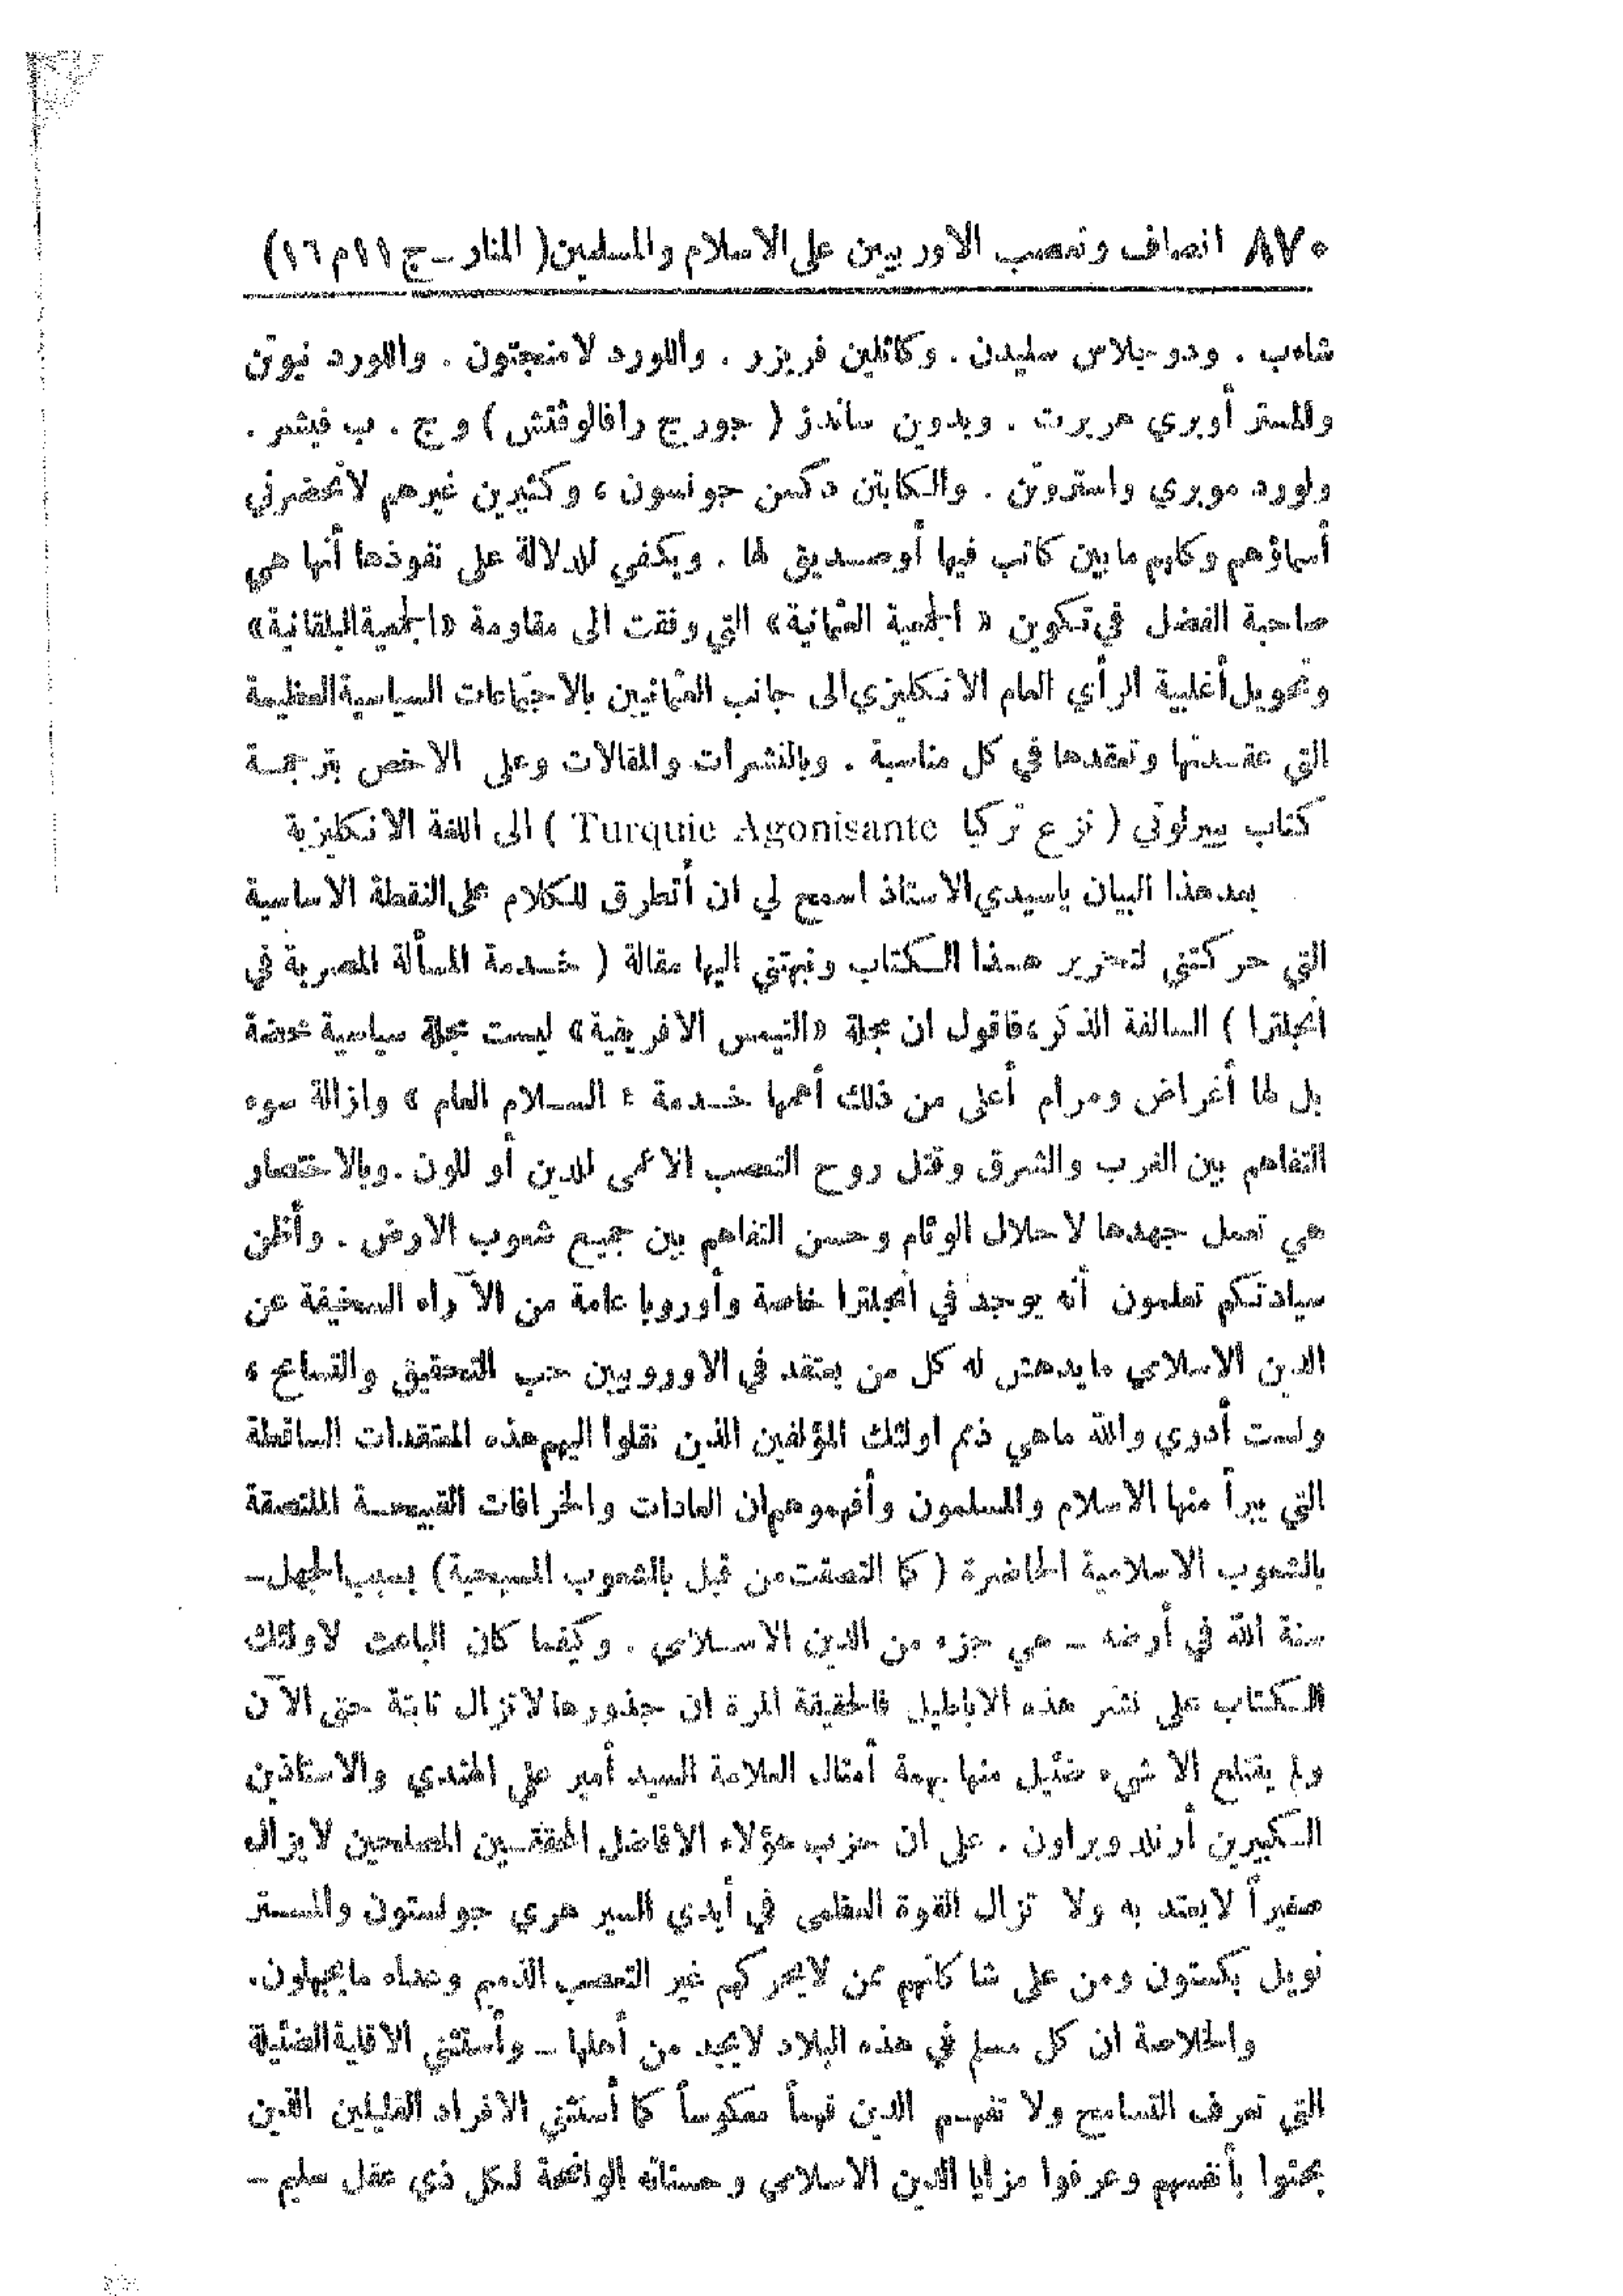 ٨٧٠ انصاف وتعصب الاوربيين على الاسلام والمسلمين (المنار ــ ج ١١ م ١٦)
شاهب . ودوجلاس سليدن . وكاثلين فريزر . واللورد لامنجتون . واللورد نيوتن
والمستر أوبري هربرت . وبدوين ساندز ( جورج رافالوفتش ) و ج . ب فيشر .
ولورد موبري واستروتن . والكابتن دكسن جونسون ، وكثيرين غيرهم لا تحضرني
أسماؤهم وكلهم مابين كاتب فيها أو صديق لها . ويكفي للدلالة على نفوذها أنها هي
صاحبة الفضل في تكوين « الجمعية العثمانية» التي وفقت الى مقاومة «الجمعية البلقانية»
وتحويل أغلبية الرأي العام الانكليزي الى جانب العثمانيين بالاجتماعات السياسية العظيمة
التي عقدتها وتعقدها في كل مناسبة . وبالنشرات والمقالات وعلى الاخص بترجمة
كتاب بييرلوتي ( نزع تركيا Turquie Agonisante ) الى اللغة الانكليزية
بعد هذا البيان ياسيدي الاستاذ اسمح لي ان أتطرق للكلام على النقطة الاساسية
التي حركتني لتحرير هذا الكتاب ونبهتني اليها مقالة ( خدمة المسألة المصرية في
انجلترا ) السالفة الذكر ، فاقول ان مجلة «التيمس الافريقية» ليست مجلة سياسية محضة
بل لها أغراض ومرام أعلى من ذلك أهمها خدمة « السلام العام » وازالة سوء
التفاهم بين الغرب والشرق وقتل روح التعصب الاعمى للدين أو للون . وبالاختصار
هي تعمل جهدها لاحلال الوئام وحسن التفاهم بين جميع شعوب الارض . وأظن
سيادتكم تعلمون أنه يوجد في انجلترا خاصة وأوروبا عامة من الآراء السخيفة عن
الدين الاسلامي مايدهش له كل من يعتقد في الاوروبيين حب التحقيق والتسامح ،
ولست أدري والله ماهي ذمم اولئك المؤلفين الذين نقلوا اليهم هذه المعتقدات الساقطة
التي يبرأ منها الاسلام والمسلمون وأفهموهم ان العادات والخرافات القبيحة الملتصقة
بالشعوب الاسلامية الحاضرة ( كما التصقت من قبل بالشعوب المسيحية) بسبب الجهل ــ
سنة الله في أرضه ــ هي جزء من الدين الاسلامي . وكيفما كان الباعث لاولئك
الكتاب على نشر هذه الاباطيل فالحقيقة المرة ان جذورها لا تزال ثابتة حتى الآن
ولم يقتلع الا شيء ضئيل منها بهمة أمثال العلامة السيد أمير علي الهندي والاستاذين
الكبيرين أرنلد وبراون . على ان حزب هؤلاء الافاضل المحققين المصلحين لايزال
صغيراً لايعتد به ولا تزال القوة العظمى في أيدي السير هري جونستون والمستر
نويل بكستون ومن على شاكلتهم ممن لايحركهم غير التعصب الذميم وعداء مايجهلون.
والخلاصة ان كل مسلم في هذه البلاد لايجد من أهلها ــ وأستثني الاقلية الضئيلة
التي تعرف التسامح ولا تفهم الدين فهماً معكوساً كما أستثني الافراد القليلين الذين
بحثوا بأنفسهم وعرفوا مزايا الدين الاسلامي وحسناته الواضحة لكل ذي عقل سليم ــ